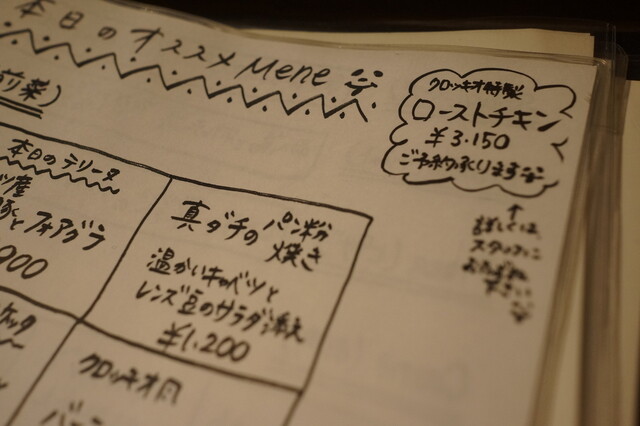 本日のオススメ Mene
前菜)
クロッキオ特製
ローストチキン
¥3.150
ご予約承ります
↑
詳しくは、
スタッフに
おたずね
下さい
本日のテリーヌ
フォアグラ
900
真ダチの パン粉
焼き
温かいキャベツと
レンズ豆のサラダ添え
¥1.200
クロッキオ風